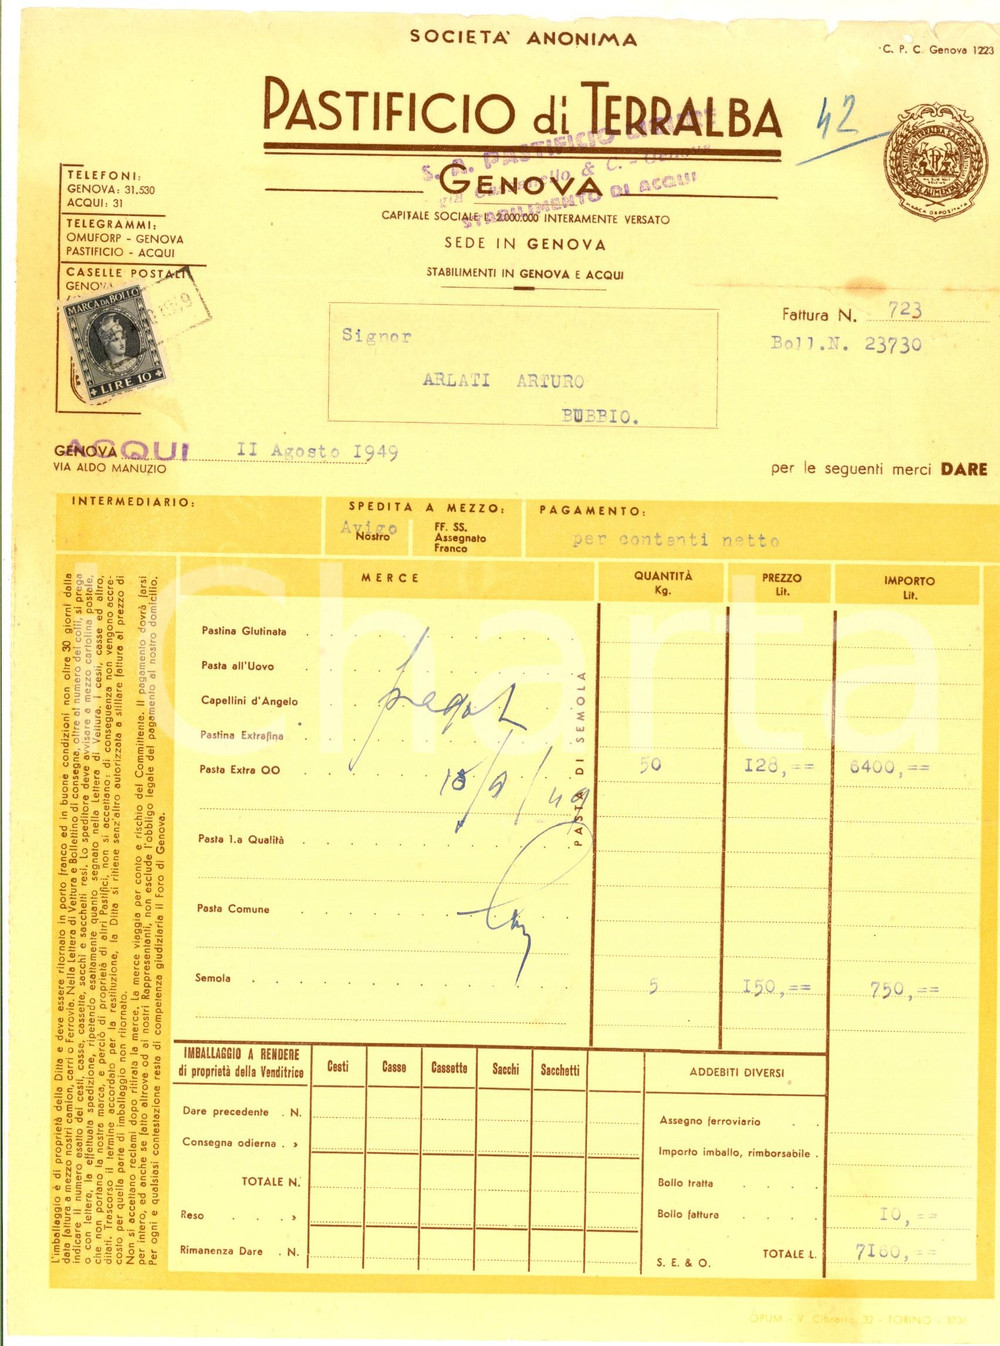 SOCIETA' ANONIMA
C. P. C. Genova 1223
PASTIFICIO di TERRALBA
42
GENOVA
S. A. PASTIFICIO
& C. - Genova
STABILIMENTO DI ACQUI
CAPITALE SOCIALE L. 2.000.000 INTERAMENTE VERSATO
SEDE IN GENOVA
STABILIMENTI IN GENOVA E ACQUI
TELEFONI:
GENOVA: 31.530
ACQUI: 31
TELEGRAMMI:
OMUFORP - GENOVA
PASTIFICIO - ACQUI
CASELLE POSTALI
GENOVA
MARCA DA BOLLO
LIRE 10
MARCA DEPOSITATA
Fattura N. 723
Boll.N. 23730
Signor
ARLATI ARTURO
BUBBIO.
GENOVA ACQUI II Agosto 1949
VIA ALDO MANUZIO
per le seguenti merci DARE
INTERMEDIARIO:
SPEDITA A MEZZO:
Avigo
Nostro
FF. SS.
Assegnato
Franco
PAGAMENTO:
per contanti netto
MERCE
QUANTITÀ
Kg.
PREZZO
Lit.
IMPORTO
Lit.
Pastina Glutinata
Pasta all'Uovo
Capellini d'Angelo
Pastina Extrafina
Pasta Extra OO 50 128,== 6400,==
Pasta 1.a Qualità
Pasta Comune
Semola 5 150,== 750,==
PASTA DI SEMOLA
pagat
18/9/49
L'imballaggio è di proprietà della Ditta e deve essere ritornato in porto franco ed in buone condizioni non oltre 30 giorni dalla
data fattura a mezzo nostri camion, carri o Ferrovia. Nella Lettera di Vettura e Bollettino di consegna, oltre al numero dei colli, si prega
indicare il numero esatto dei cesti, casse, cassette, sacchi e sacchetti resi. Lo speditore deve avvisare a mezzo cartolina postale,
o con lettera, la effettuata spedizione, ripetendo esattamente quanto segnato nella Lettera di Vettura. I cesti, casse ed altro,
che non portano la nostra marca, e perciò di proprietà di altri Pastifici, non si accettano: di conseguenza non vengono accre-
ditati. Trascorso il termine accordato per la restituzione, la Ditta si ritiene senz'altro autorizzata a stillare fattura al prezzo di
costo per quella parte di imballaggio non ritornato.
Non si accettano reclami dopo ritirata la merce. La merce viaggia per conto e rischio del Committente. Il pagamento dovrà farsi
per intero, ed anche se fatto altrove od ai nostri Rappresentanti, non esclude l'obbligo legale del pagamento al nostro domicilio.
Per ogni e qualsiasi contestazione resta di competenza giudiziaria il Foro di Genova.
IMBALLAGGIO A RENDERE
di proprietà della Venditrice
Cesti Casse Cassette Sacchi Sacchetti
Dare precedente . N.
Consegna odierna . »
TOTALE N.
Reso . . . »
Rimanenza Dare . N.
ADDEBITI DIVERSI
Assegno ferroviario
Importo imballo, rimborsabile .
Bollo tratta
Bollo fattura 10,==
S. E. & O. TOTALE L. 7160,==
OPUM - V. Cibrario, 32 - TORINO
Charta